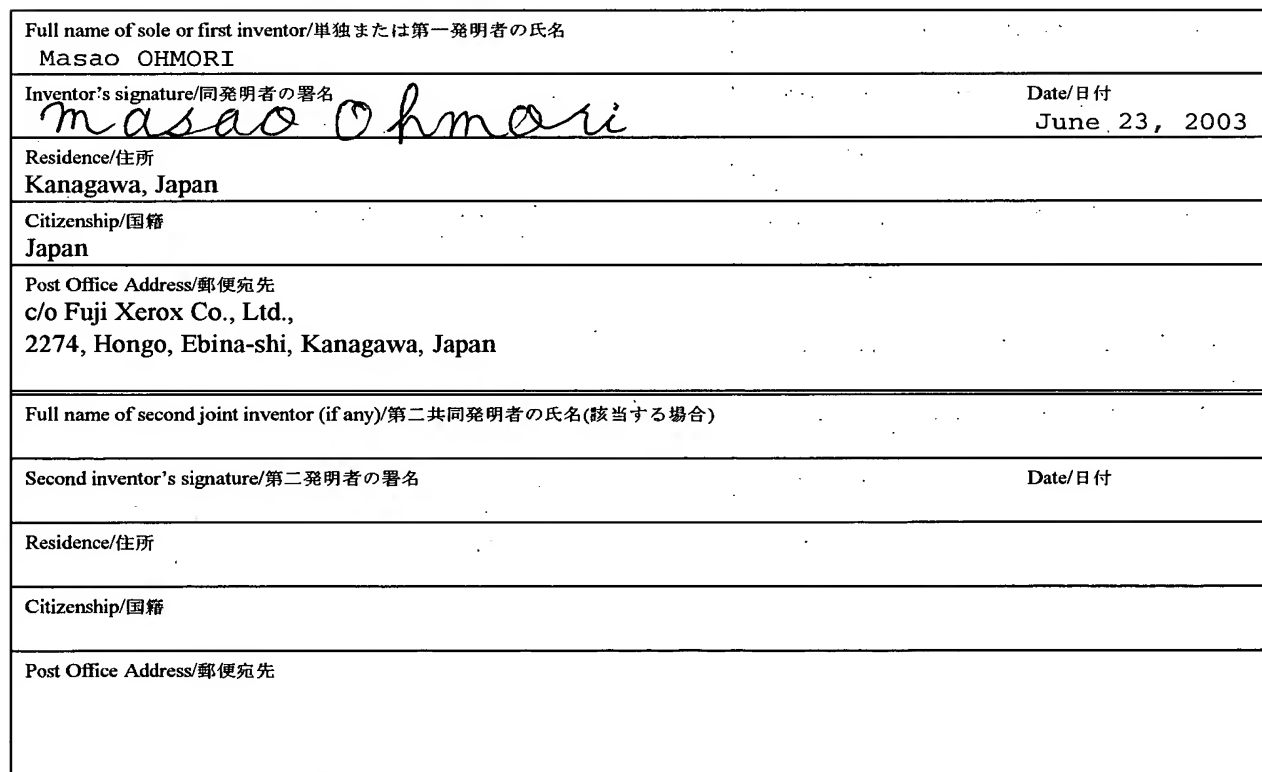 Full name of sole or first inventor/単独または第一発明者の氏名
Masao OHMORI
Inventor's signature/同発明者の署名 Date/日付
Masao Ohmori June 23, 2003
Residence/住所
Kanagawa, Japan
Citizenship/国籍
Japan
Post Office Address/郵便宛先
c/o Fuji Xerox Co., Ltd.,
2274, Hongo, Ebina-shi, Kanagawa, Japan
Full name of second joint inventor (if any)/第二共同発明者の氏名(該当する場合)
Second inventor's signature/第二発明者の署名 Date/日付
Residence/住所
Citizenship/国籍
Post Office Address/郵便宛先